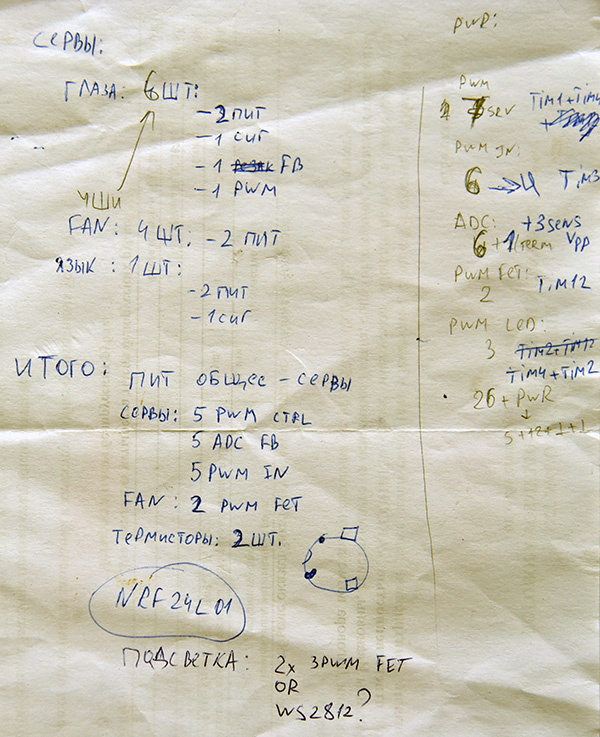 СЕРВЫ:
ГЛАЗА: 6 ШТ:
- 2 ПИТ
- 1 СИГ
- 1 FB
- 1 PWM
УШИ
FAN: 4 ШТ. - 2 ПИТ
ЯЗЫК: 1 ШТ:
- 2 ПИТ
- 1 СИГ
ИТОГО:
ПИТ ОБЩЕЕ - СЕРВЫ
СЕРВЫ: 5 PWM CTRL
5 ADC FB
5 PWM IN
FAN: 2 PWM FET
ТЕРМИСТОРЫ: 2 ШТ.
NRF24L01
ПОДСВЕТКА: 2x 3PWM FET
OR
WS2812?
PWR:
PWM
SERV TIM1+TIM4
PWM IN:
6 → 4 TIM3
ADC: +3SENS
6 + 1 TERM VPP
PWM FET:
2 TIM12
PWM LED:
3 TIM2+TIM12
TIM4+TIM2
26 + PWR
↓
5+12+1+1